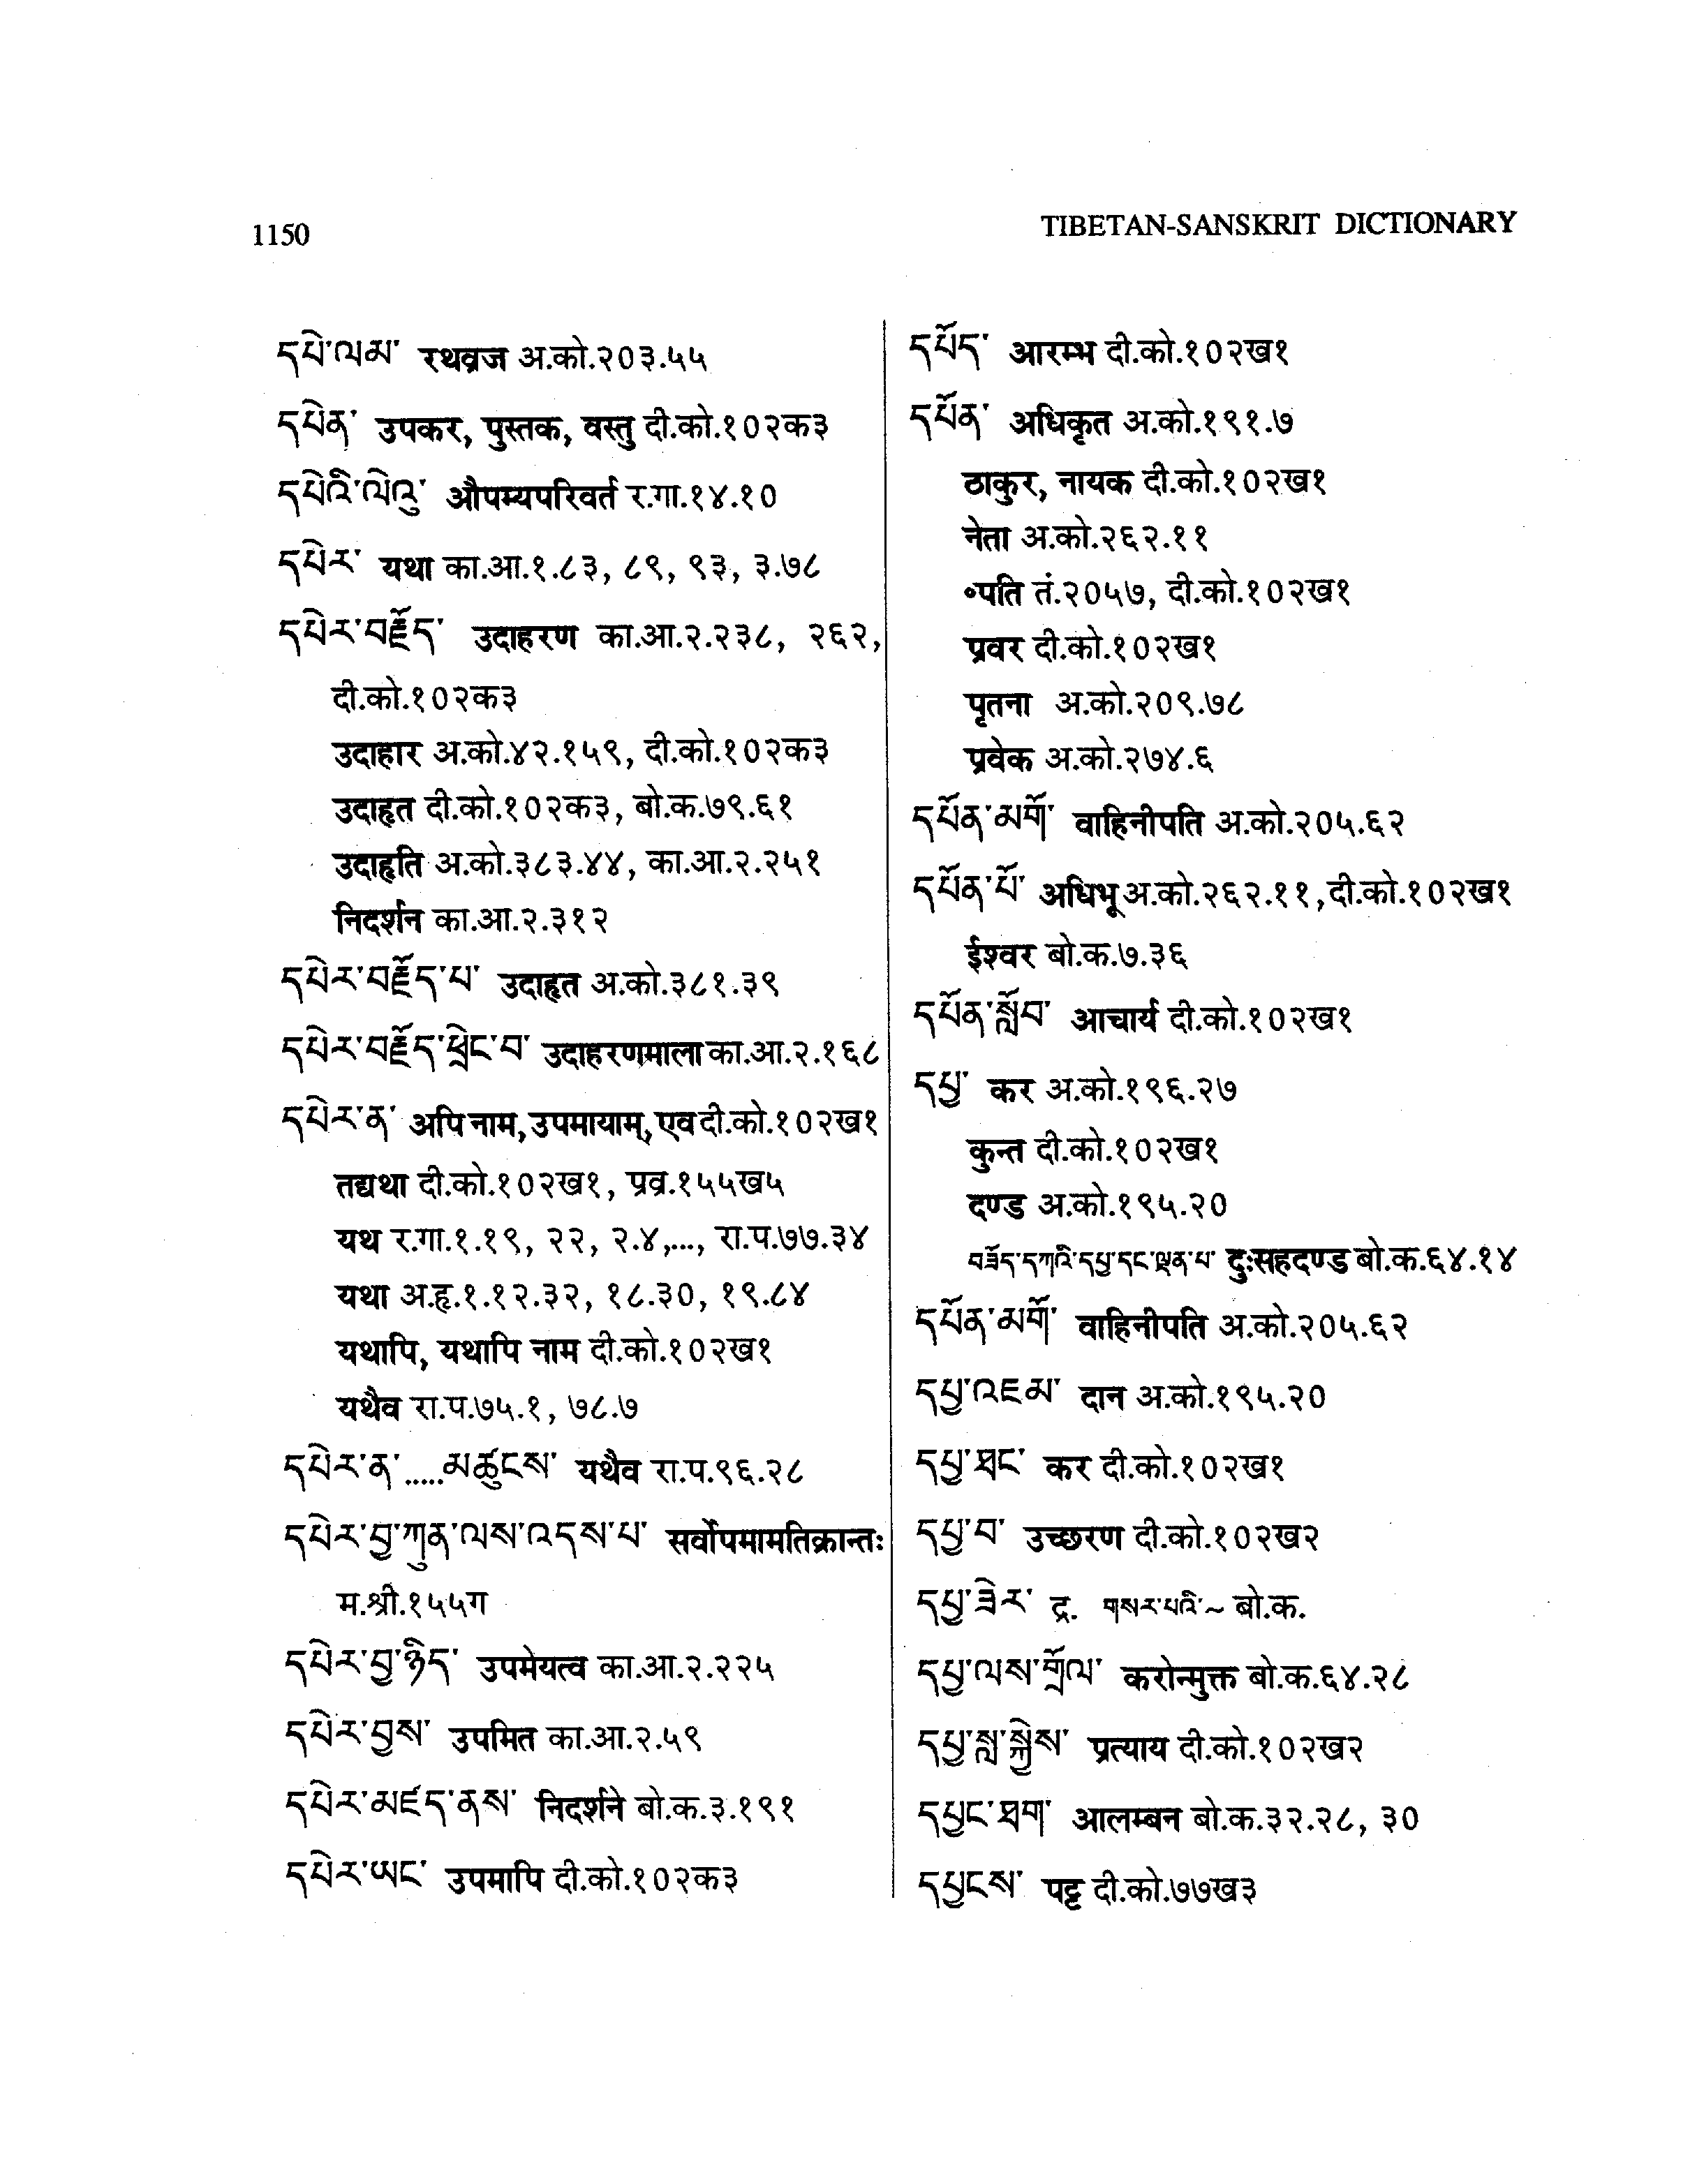 1150
TIBETAN-SANSKRIT DICTIONARY
དཔེ་ལམ་ रथव्रज अ.को.२०३.५५
དཔེན་ उपकर, पुस्तक, वस्तु दी.को.१०२क३
དཔེའི་ལེའུ་ औपम्यपरिवर्त र.गा.१४.१०
དཔེར་ यथा का.आ.१.८३, ८९, ९३, ३.७८
དཔེར་བརྗོད་ उदाहरण का.आ.२.२३८, २६२,
दी.को.१०२क३
उदाहार अ.को.४२.१५९, दी.को.१०२क३
उदाहृत दी.को.१०२क३, बो.क.७९.६१
उदाहृति अ.को.३८३.४४, का.आ.२.२५१
निदर्शन का.आ.२.३१२
དཔེར་བརྗོད་པ་ उदाहृत अ.को.३८१.३९
དཔེར་བརྗོད་ཕྲེང་བ་ उदाहरणमाला का.आ.२.१६८
དཔེར་ན་ अपि नाम, उपमायाम्, एव दी.को.१०२ख१
तद्यथा दी.को.१०२ख१, प्रव्र.१५५ख५
यथ र.गा.१.१९, २२, २.४,..., रा.प.७७.३४
यथा अ.हृ.१.१२.३२, १८.३०, १९.८४
यथापि, यथापि नाम दी.को.१०२ख१
यथैव रा.प.७५.१, ७८.७
དཔེར་ན་.....མཚུངས་ यथैव रा.प.९६.२८
དཔེར་བྱ་ཀུན་ལས་འདས་པ་ सर्वोपमामतिक्रान्तः
म.श्री.१५५ग
དཔེར་བྱ་ཉིད་ उपमेयत्व का.आ.२.२२५
དཔེར་བྱས་ उपमित का.आ.२.५९
དཔེར་མཛད་ནས་ निदर्शने बो.क.३.१९१
དཔེར་ཡང་ उपमापि दी.को.१०२क३
དཔོད་ आरम्भ दी.को.१०२ख१
དཔོན་ अधिकृत अ.को.१९१.७
ठाकुर, नायक दी.को.१०२ख१
नेता अ.को.२६२.११
॰पति तं.२०५७, दी.को.१०२ख१
प्रवर दी.को.१०२ख१
पृतना अ.को.२०९.७८
प्रवेक अ.को.२७४.६
དཔོན་མགོ་ वाहिनीपति अ.को.२०५.६२
དཔོན་པོ་ अधिभू अ.को.२६२.११, दी.को.१०२ख१
ईश्वर बो.क.७.३६
དཔོན་སློབ་ आचार्य दी.को.१०२ख१
དཔྱ་ कर अ.को.१९६.२७
कुन्त दी.को.१०२ख१
दण्ड अ.को.१९५.२०
བཟོད་དཀའི་དཔྱ་དང་ལྡན་པ་ दुःसहदण्ड बो.क.६४.१४
དཔོན་མགོ་ वाहिनीपति अ.को.२०५.६२
དཔྱ་འཇམ་ दान अ.को.१९५.२०
དཔྱ་ཐང་ कर दी.को.१०२ख१
དཔྱ་བ་ उच्छरण दी.को.१०२ख२
དཔྱ་ཟེར་ द्र. གསར་པའི་~ बो.क.
དཔྱ་ལས་གྲོལ་ करोन्मुक्त बो.क.६४.२८
དཔྱ་སླ་སྐྱེས་ प्रत्याय दी.को.१०२ख२
དཔྱང་ཐག་ आलम्बन बो.क.३२.२८, ३०
དཔྱངས་ पट्ट दी.को.७७ख३